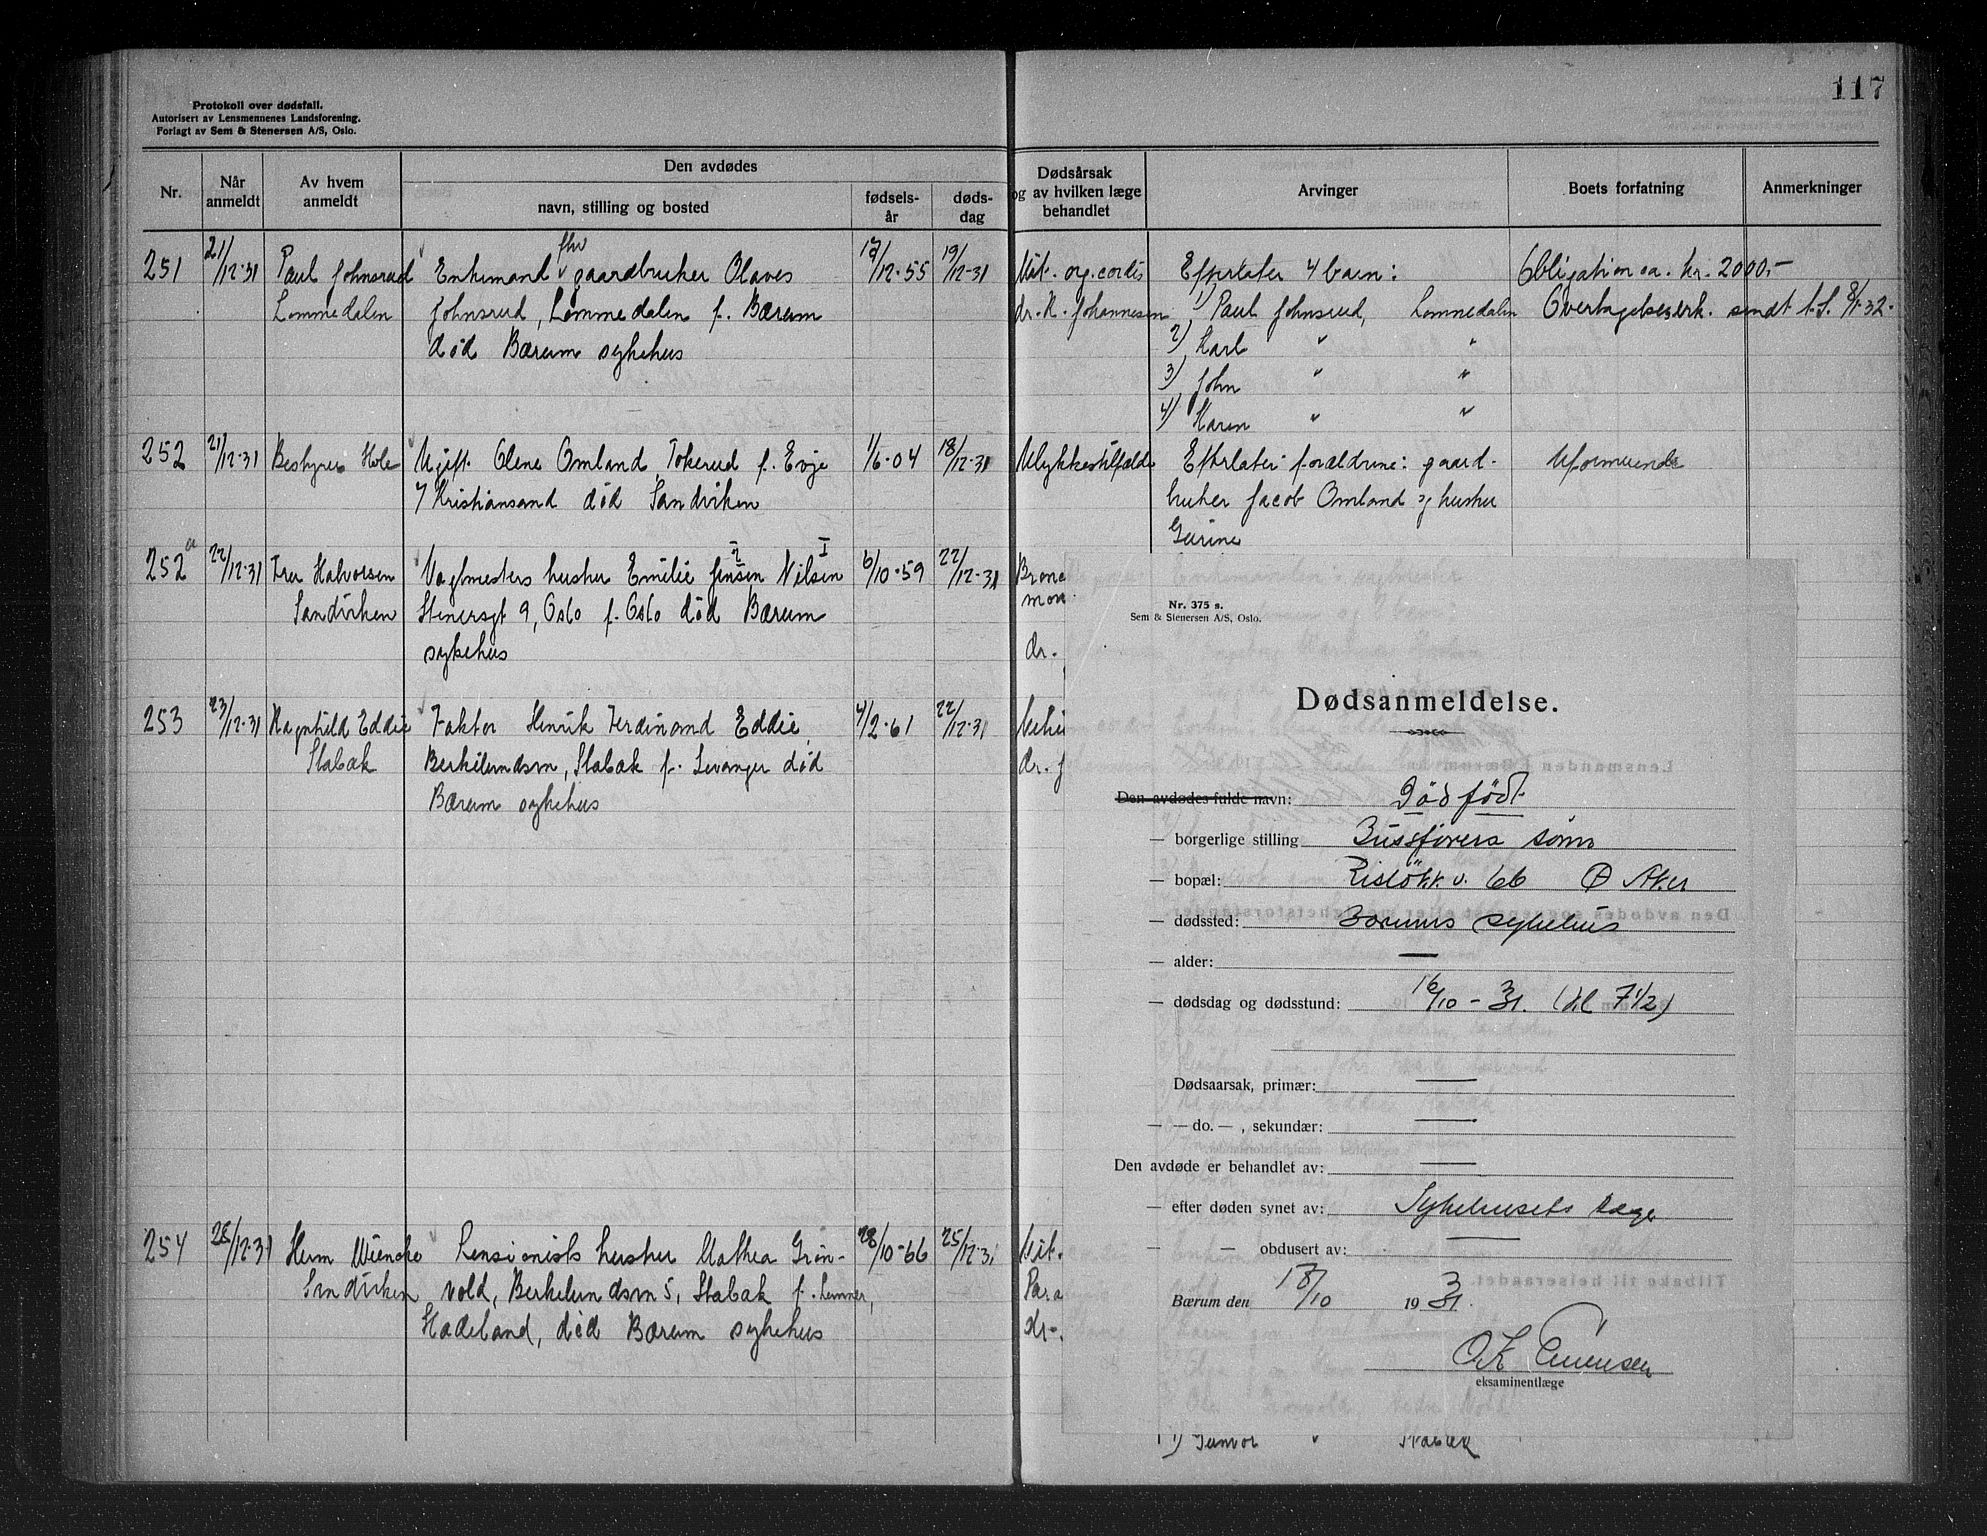 117
Protokoll over dødsfall.
Autorisert av Lensmennenes Landsforening.
Forlagt av Sem & Stenersen A/S, Oslo.
Nr.
Når anmeldt
Av hvem anmeldt
Den avdødes
navn, stilling og bosted
fødsels-år
døds-dag
Dødsårsak
og av hvilken læge
behandlet
Arvinger
Boets forfatning
Anmerkninger
251
21/12-31
Paul Johnsrud
Lommedalen
Enkemand fhv gaardbruker Olaves
Johnsrud, Lommedalen f. Bærum
død Bærum sykehus
17/12-55
19/12-31
Vit. org. cordis
dr. K. Johannesen
Efterlater 4 barn:
1) Paul Johnsrud, Lommedalen
2) Karl " "
3) John " "
4) Karen " "
Obligation ca. kr. 2000.-
Overtagelseserk. sendt t.S. 8/1-32.
252
21/12-31
Bestyrer Hole
Ugift Olene Omland, Tokerud f. Evje
/ Kristiansand død Sandviken
1/6-04
18/12-31
Ulykkestilfælde
Efterlater forældrene: gaard-
bruker Jacob Omland og hustru
Gurine
Uformuende
252 a
22/12-31
Fru Halvorsen
Sandviken
Vagtmesters hustru Emilie Jensen Nilsen
II I
Stenersgt 9, Oslo f. Oslo død Bærum
sykehus
6/10-59
22/12-31
dr.
253
23/12-31
Ragnhild Eddie
Stabæk
Faktor Henrik Ferdinand Eddie,
Berkelundsvn, Stabæk f. Levanger død
Bærum sykehus
4/2-61
22/12-31
dr. J
254
28/12-31
Herm Wiencke
Sandviken
Pensionists hustru Mathea Grøn-
vold, Berkelundsvn 5, Stabæk f. Lunner,
Hadeland, død Bærum sykehus
28/10-66
25/12-31
Vit.
Para
dr.
Nr. 375 s.
Sem & Stenersen A/S, Oslo.
Dødsanmeldelse.
Den avdødes fulde navn: Dødfødt
— borgerlige stilling Bussførers sønn
— bopæl: Risløkk v. 66 Ø Aker
— dødssted: Bærums sykehus
— alder: —
— dødsdag og dødsstund: 16/10 - 31. (kl 7 1/2)
Dødsaarsak, primær: —
— — do. — , sekundær: —
Den avdøde er behandlet av: —
— efter døden synet av: Sykehusets læge
— — obdusert av: —
Bærum den 18/10 1931.
eksaminentlæge
1) Gunvor " Stabæk